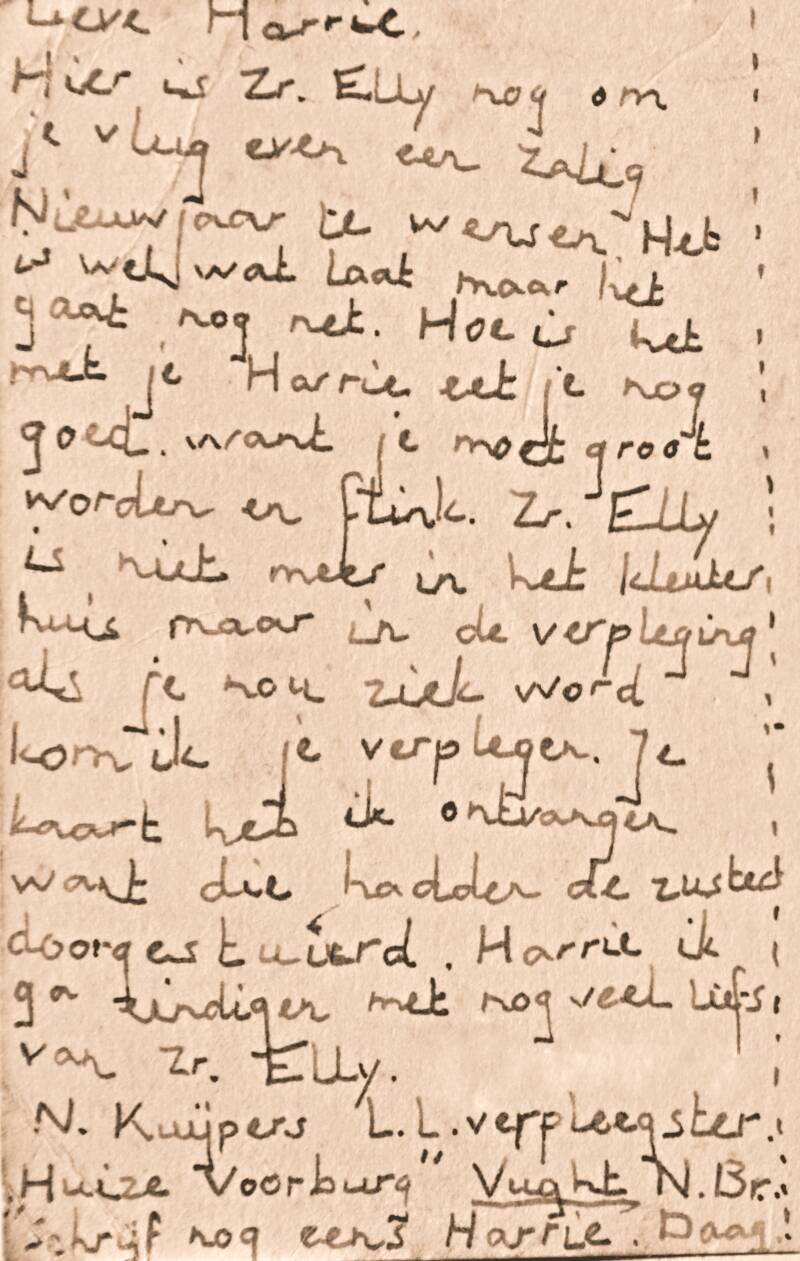 Lieve Harrie.
Hier is Zr. Elly nog om
je vlug even een zalig
Nieuwjaar te wensen. Het
is wel wat laat maar het
gaat nog net. Hoe is het
met je Harrie eet je nog
goed. want je moet groot
worden en flink. Zr. Elly
is niet meer in het kleuter
huis maar in de verpleging
als je nou ziek word
kom ik je verplegen. Je
kaart heb ik ontvangen
want die hadden de zusters
doorgestuurd. Harrie ik
ga eindigen met nog veel liefs
van Zr. Elly.
N. Kuijpers L.L. verpleegster.
Huize Voorburg" Vught N.Br.
"Schrijf nog eens Harrie. Daag!